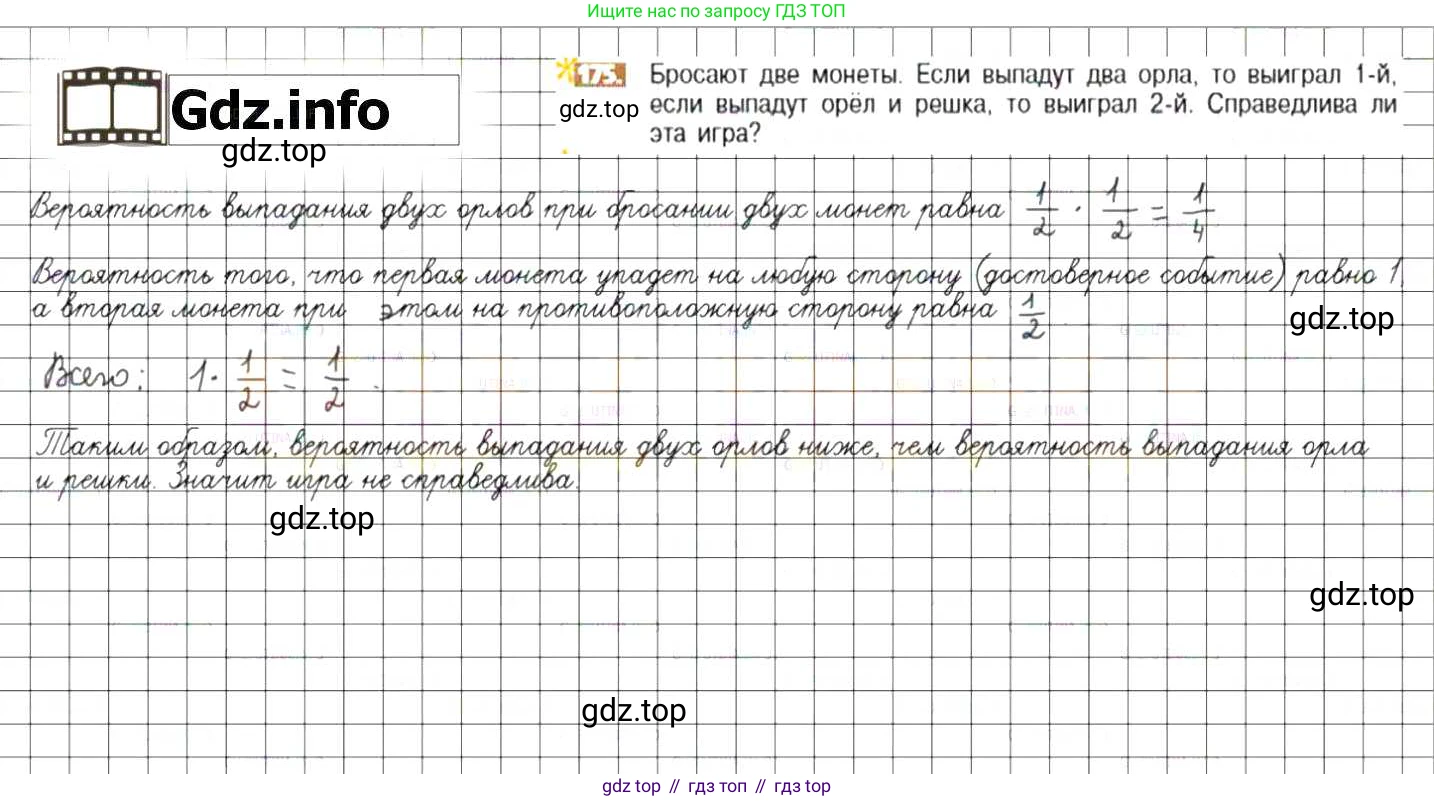 Ищите нас по запросу ГДЗ ТОП
Gdz.info
gdz.top
175.
gdz.top
Бросают две монеты. Если выпадут два орла, то выиграл 1-й,
если выпадут орёл и решка, то выиграл 2-й. Справедлива ли
эта игра?
Вероятность выпадания двух орлов при бросании двух монет равна 1/2 · 1/2 = 1/4
Вероятность того, что первая монета упадет на любую сторону (достоверное событие) равно 1,
а вторая монета при этом на противоположную сторону равна 1/2
gdz.top
Всего: 1 · 1/2 = 1/2.
Таким образом, вероятность выпадания двух орлов ниже, чем вероятность выпадания орла
и решки. Значит игра не справедлива.
gdz.top
gdz.top
gdz.top
gdz top // гдз топ // гдз top